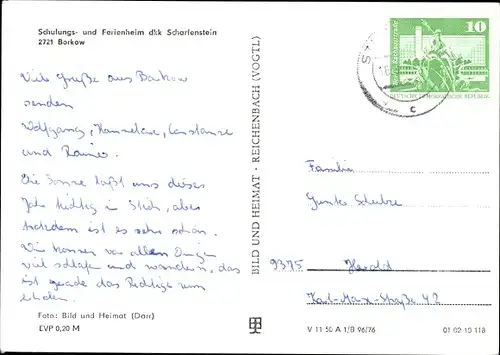 Schulungs- und Ferienheim dkk Scharfenstein
2721 Borkow
Viele Grüße aus Borkow
senden
Wolfgang, Hannelore, Constanze
und Rainer.
Die Sonne läßt uns dieses
Jahr tüchtig im Stich, aber
trotzdem ist es sehr schön.
Wir können vor allen Dingen
viel schlafen und wandern, das
ist gerade das Richtige zum
erholen.
Foto: Bild und Heimat (Darr)
EVP 0,20 M
BILD UND HEIMAT · REICHENBACH (VOGTL)
10
DEUTSCHE DEMOKRATISCHE REPUBLIK
c
Familie
Günter Schulze
9375 Herold
Karl-Marx-Straße 42
V 11 50 A 1/B 96/76
01 02 10 118